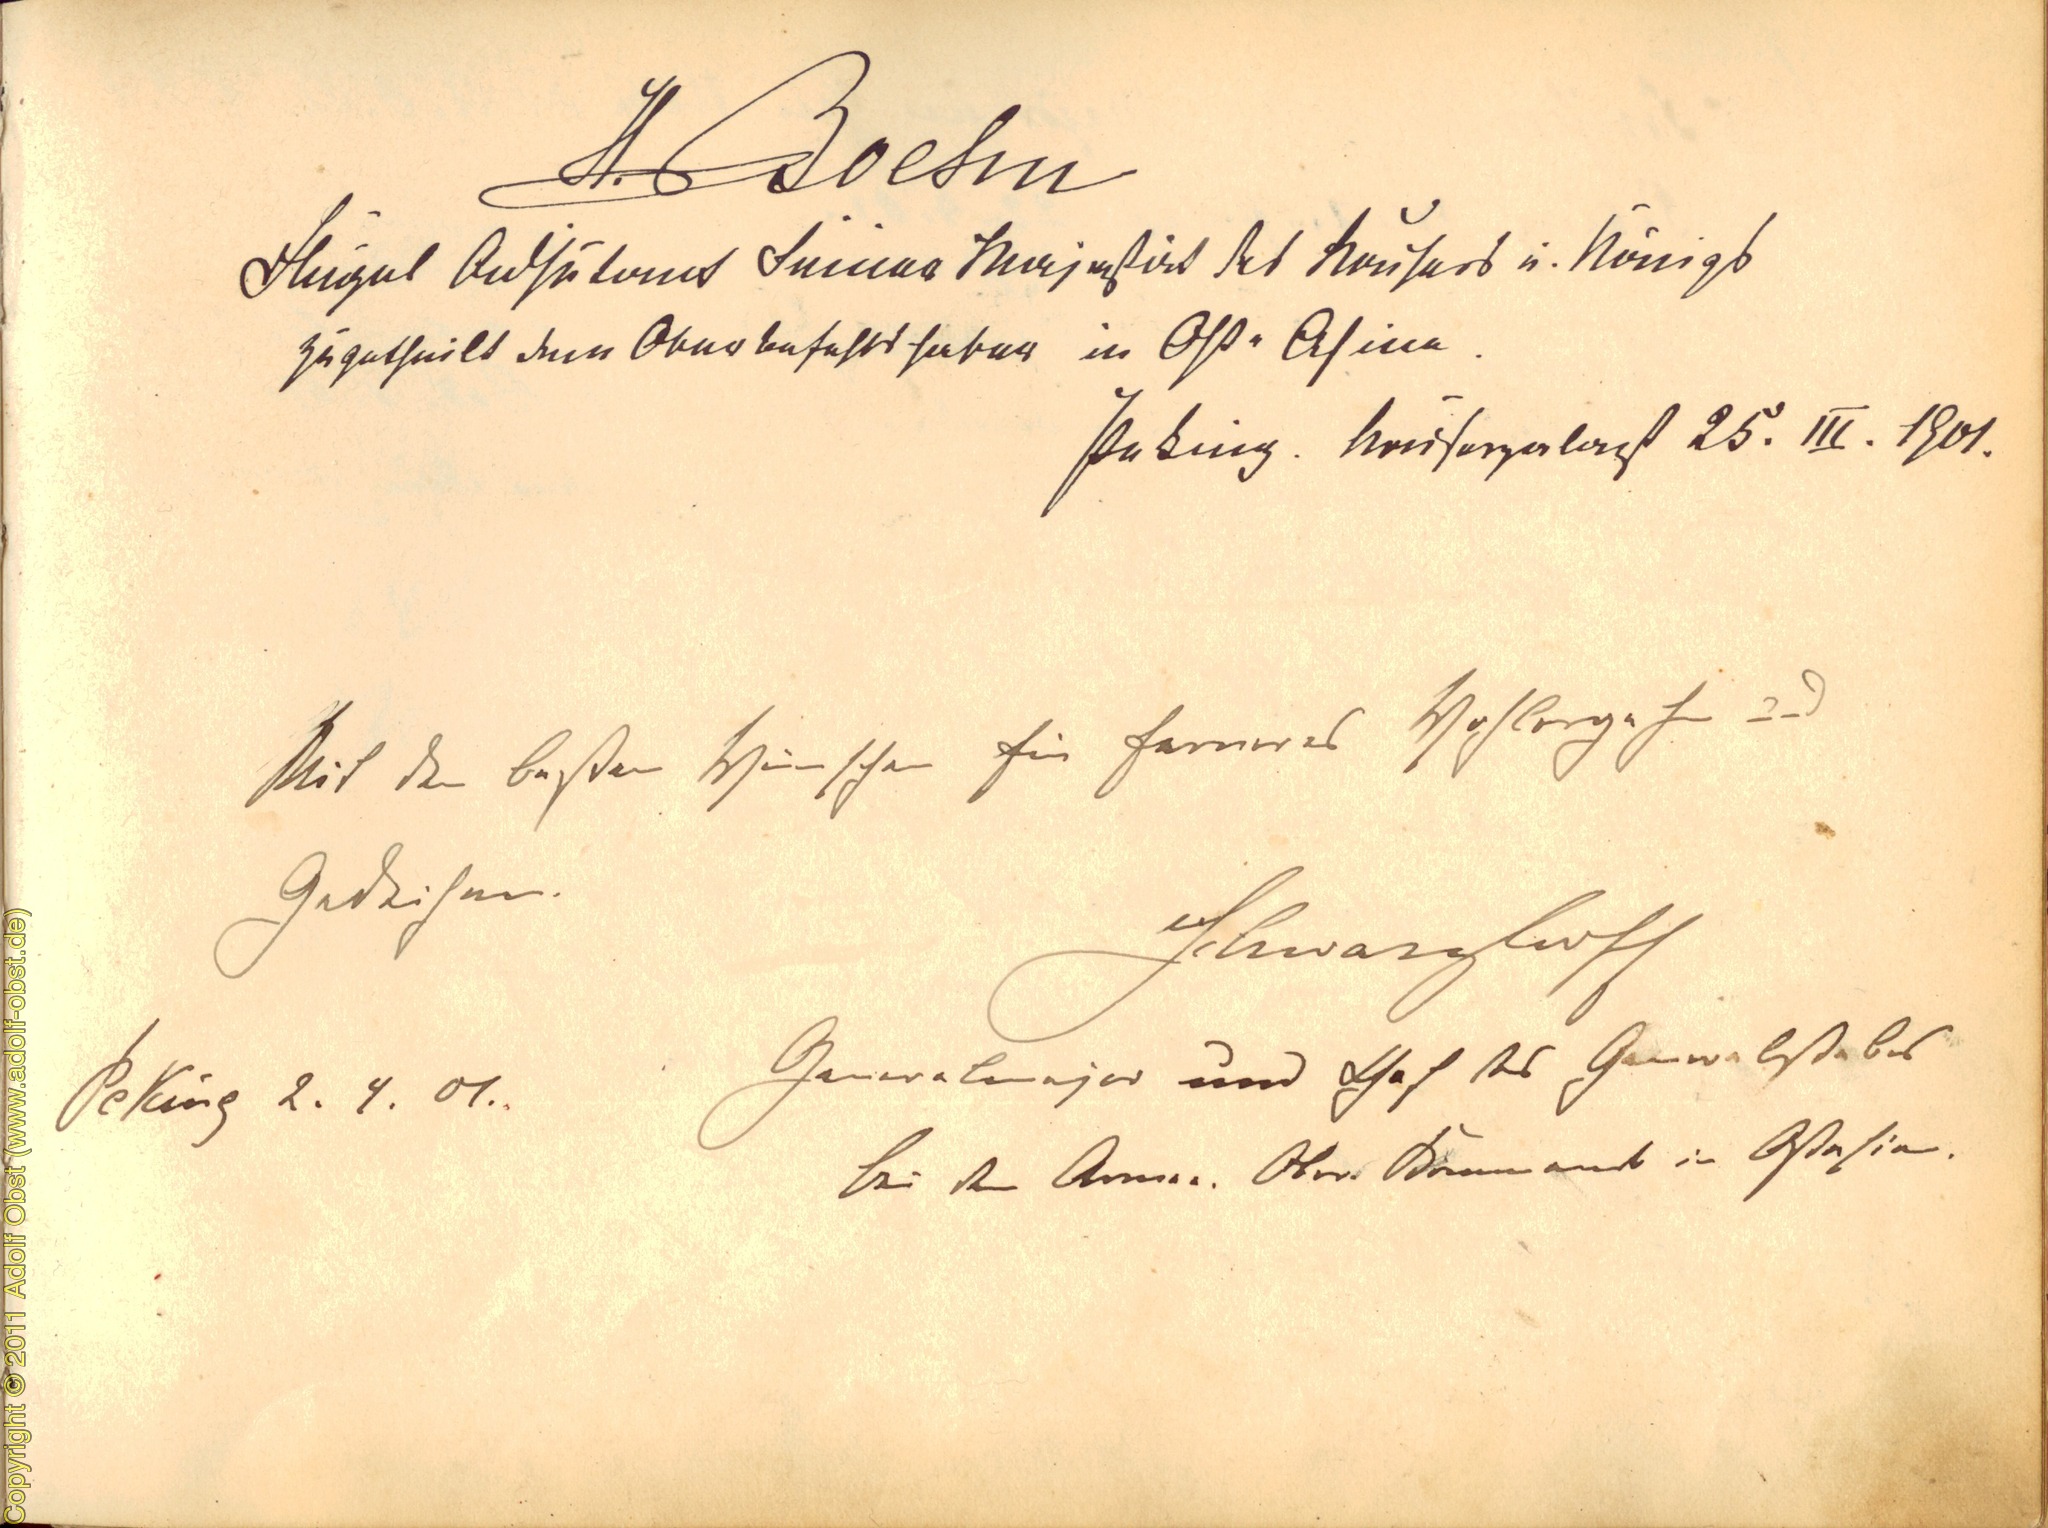 H. Boehm
Flügel Adjutant Seiner Majestät des Kaisers u. Königs
zugetheilt dem Oberbefehlshaber in Ost-Asien.
Peking. Kaiserpalast 25. III. 1901.
Mit den besten Wünschen für ferneres Wohlergehn und
Gedeihen.
Schwarzhoff
Peking 2. 4. 01.
Generalmajor und Chef des Generalstabes
bei dem Armee-Ober-Kommando in Ostasien.
Copyright © 2011 Adolf Obst (www.adolf-obst.de)